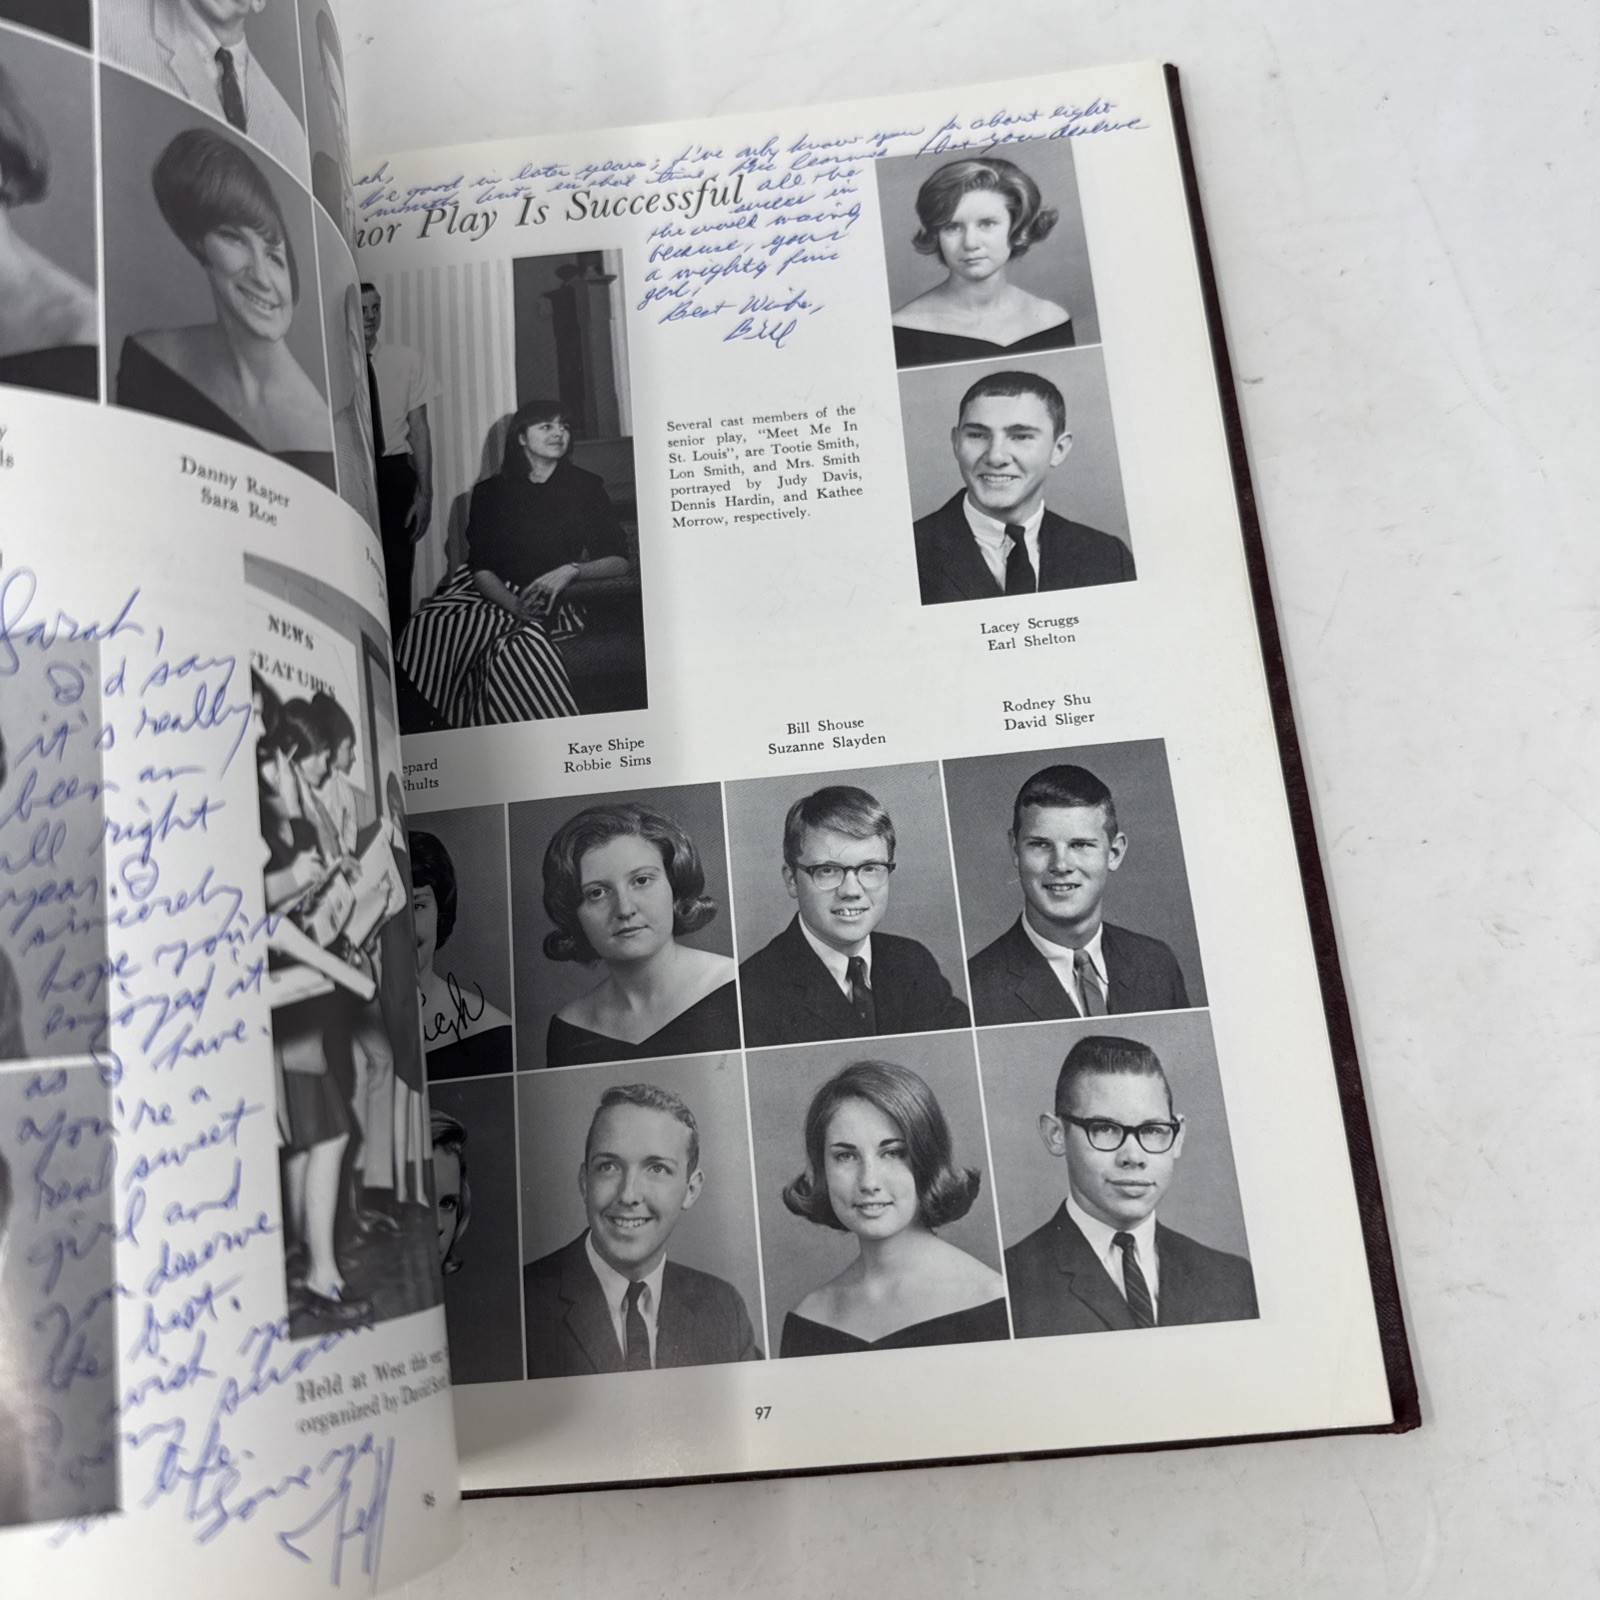 Danny Raper
Sara Roe
Sarah,
I'd say
it's really
been an
all right
year. I
sincerely
hope you've
enjoyed it
as I have.
You're a
real sweet
girl and
you deserve
the best.
wish you
in
life.
Love ya
Jeff
NEWS
FEATURES
Held at West this
organized by David
96
be good in later years; I've only know you for about eight
months but in that time I've learned that you deserve
all the
success in
the world
because, your
a mighty fine
girl,
Best Wishes,
Bill
ior Play Is Successful
Several cast members of the
senior play, "Meet Me In
St. Louis", are Tootie Smith,
Lon Smith, and Mrs. Smith
portrayed by Judy Davis,
Dennis Hardin, and Kathee
Morrow, respectively.
Lacey Scruggs
Earl Shelton
epard
Shults
Kaye Shipe
Robbie Sims
Bill Shouse
Suzanne Slayden
Rodney Shu
David Sliger
97